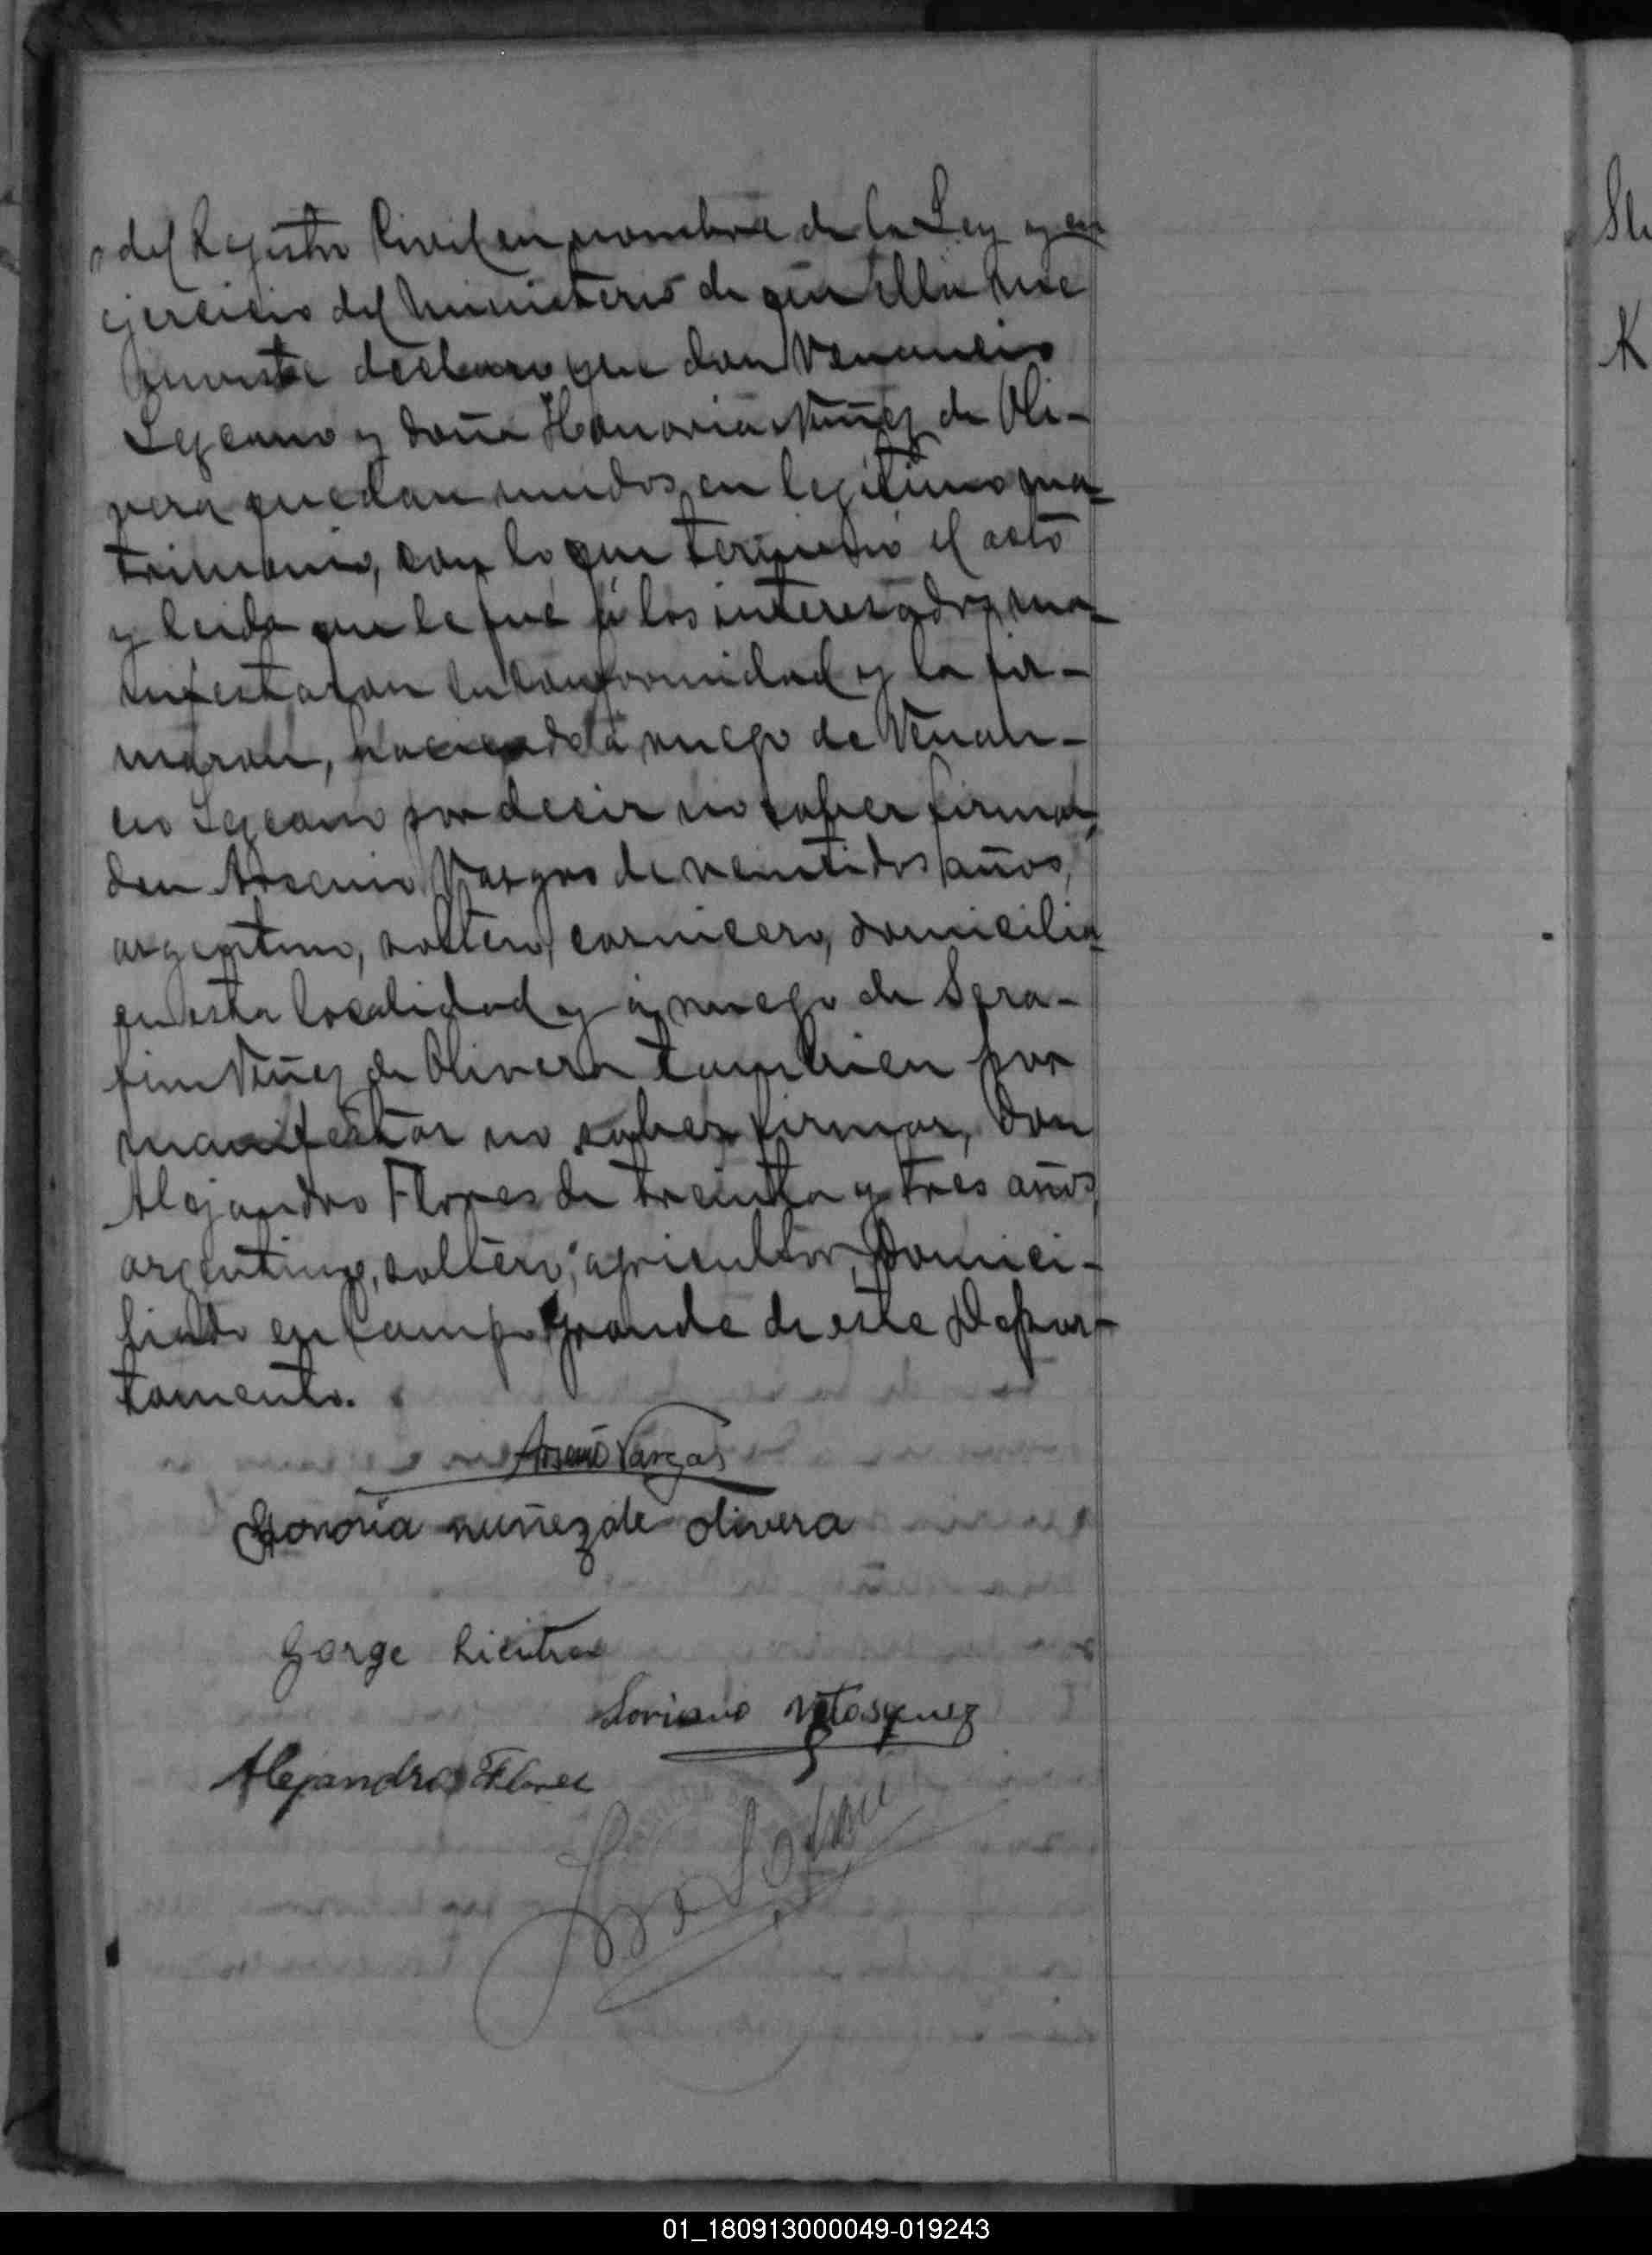 del Registro Civil en nombre de la Ley y en
ejercicio del Ministerio de que ella me
inviste declaro que don Venancio
Lezcano y doña Honoria Nuñez de Oli-
vera quedan unidos en legitimo ma-
trimonio, con lo que terminó el acto
y leida que le fué á los interesados, ma-
nifestaron su conformidad y la fir-
maron, haciendolo á ruego de Venan-
cio Lezcano por decir no saber firmar,
don Arsenio Vargas de veintidos años,
argentino, soltero, carnicero, domicilia
en esta localidad y á ruego de Sera-
fin Nuñez de Olivera tambien por
manifestar no saber firmar, don
Alejandro Flores de treinta y tres años,
argentino, soltero, agricultor, domici-
liado en Campo Grande de este Depar-
tamento.
Arsenio Vargas
Honoria nuñez de olivera
Gorge
Soriano Velasquez
Alejandro Flores
K
01_180913000049-019243